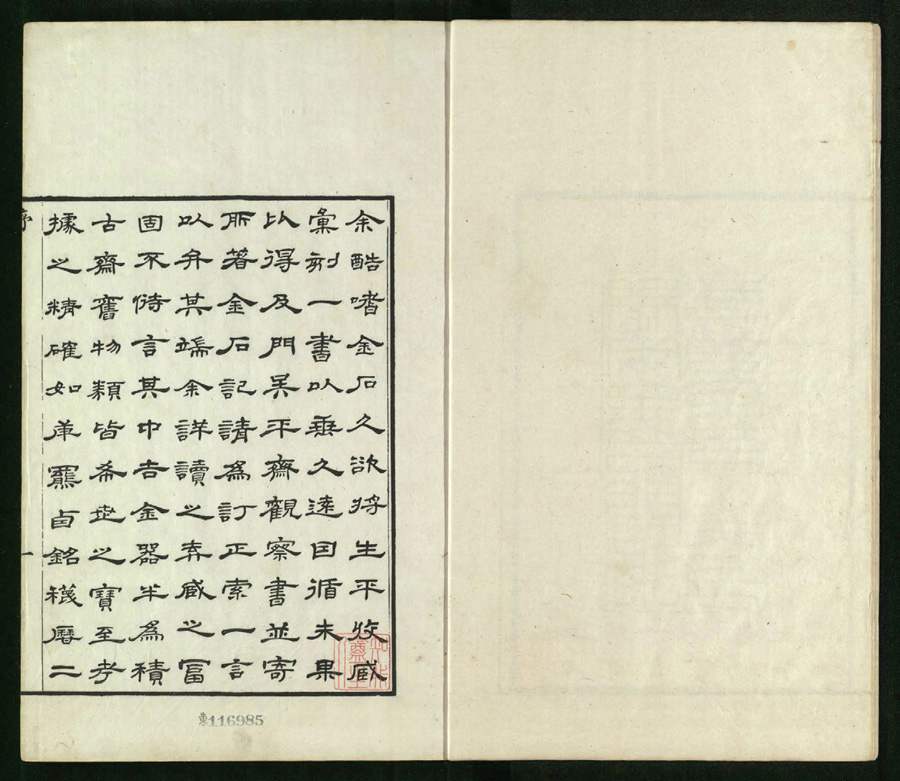 余酷嗜金石久欲將生平收藏
彙刻一書以垂久遠因循未果
比得及門吳平齋觀察書並寄
所著金石記請為訂正索一言
以弁其端余詳讀之弆藏之富
固不待言其中吉金器半為積
古齋舊物類皆希世之寶至考
據之精確如羆卣銘曆二
序 一
東116985